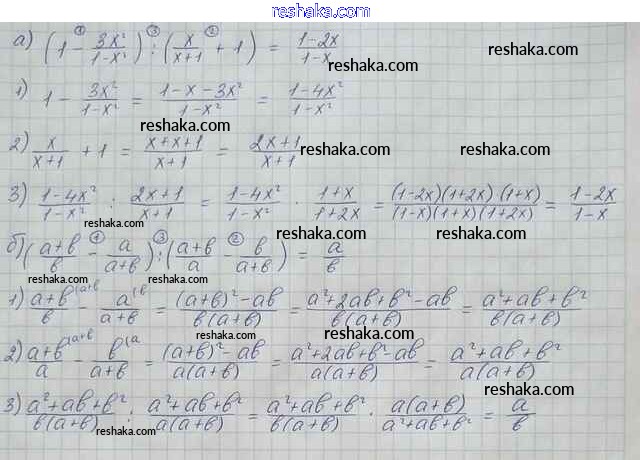 reshaka.com
а) (1 - 3x²/(1-x²)) : (x/(x+1) + 1) = (1-2x)/(1-x)
① ③ ②
reshaka.com
reshaka.com
1) 1 - 3x²/(1-x²) = (1-x-3x²)/(1-x²) = (1-4x²)/(1-x²)
reshaka.com
reshaka.com
2) x/(x+1) + 1 = (x+x+1)/(x+1) = (2x+1)/(x+1)
reshaka.com
3) (1-4x²)/(1-x²) : (2x+1)/(x+1) = (1-4x²)/(1-x²) · (1+x)/(1+2x) = (1-2x)(1+2x)(1+x)/(1-x)(1+x)(1+2x) = (1-2x)/(1-x)
reshaka.com
reshaka.com
б) ((a+b)/b - a/(a+b)) : ((a+b)/a - b/(a+b)) = a/b
① ③ ②
reshaka.com
reshaka.com
1) (a+b)/b ⁽ᵃ⁺ᵇ - a/(a+b) ⁽ᵇ = ((a+b)²-ab)/(b(a+b)) = (a²+2ab+b²-ab)/(b(a+b)) = (a²+ab+b²)/(b(a+b))
reshaka.com
reshaka.com
2) (a+b)/a ⁽ᵃ⁺ᵇ - b/(a+b) ⁽ᵃ = ((a+b)²-ab)/(a(a+b)) = (a²+2ab+b²-ab)/(a(a+b)) = (a²+ab+b²)/(a(a+b))
reshaka.com
reshaka.com
3) (a²+ab+b²)/(b(a+b)) : (a²+ab+b²)/(a(a+b)) = (a²+ab+b²)/(b(a+b)) · a(a+b)/(a²+ab+b²) = a/b
reshaka.com
reshaka.com